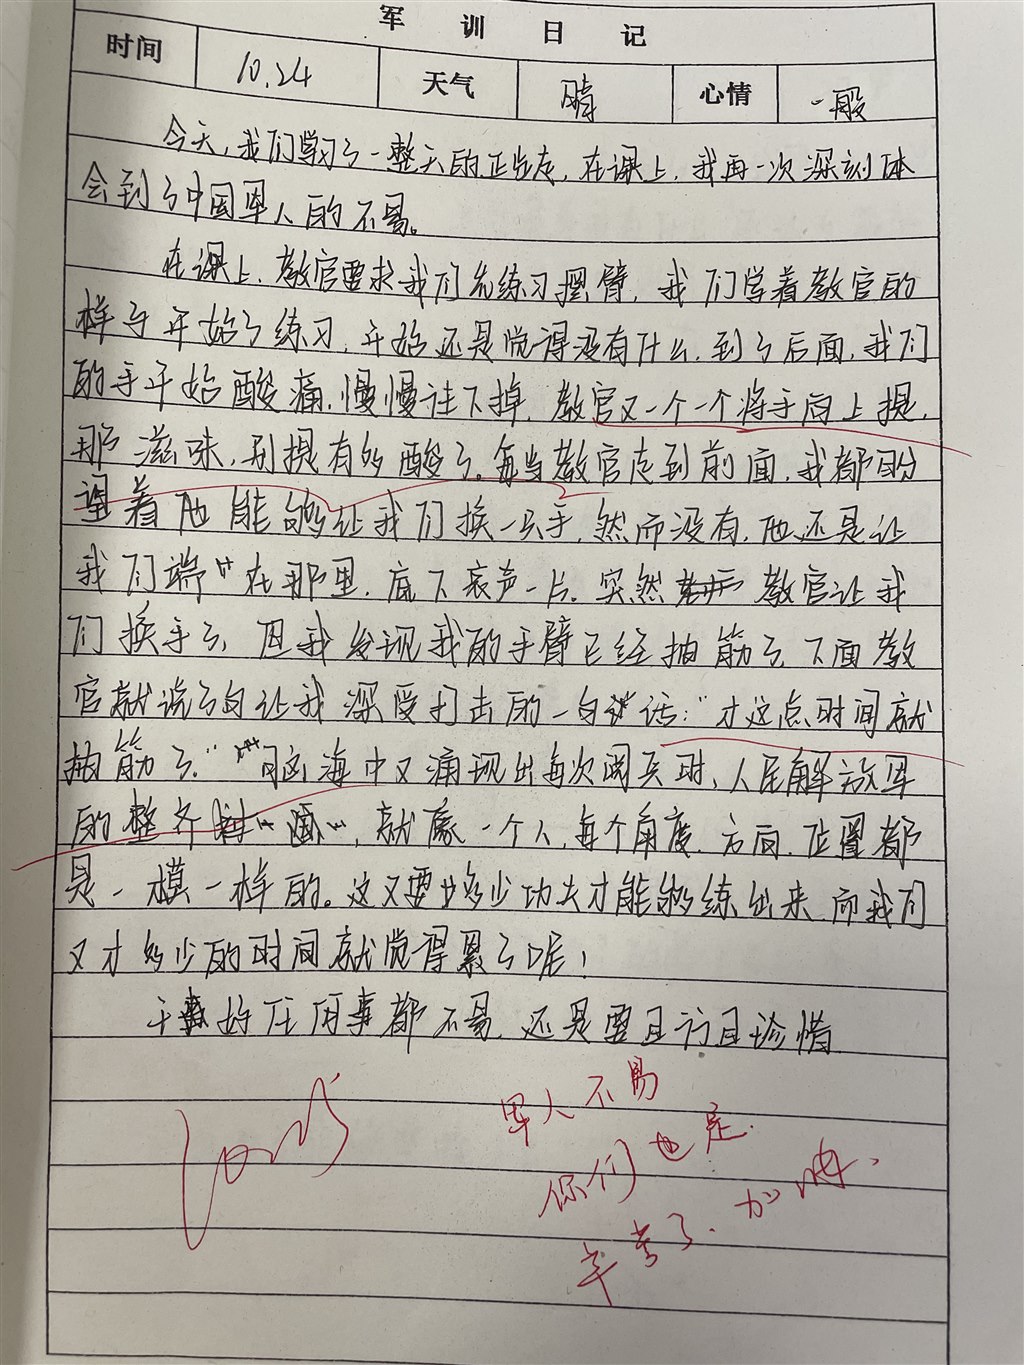 军训日记
时间 10.24 天气 晴 心情 一般
今天,我们学习了一整天的正步走,在课上,我再一次深刻体
会到了中国军人的不易。
在课上,教官要求我们先练习摆臂,我们学着教官的
样子开始了练习,开始还是觉得没有什么,到了后面,我们
的手开始酸痛,慢慢往下掉,教官又一个一个将手向上提,
那滋味,别提有多酸了。每当教官走到前面,我都盼
望着他能够让我们换一只手,然而没有,他还是让
我们端在那里,底下哀声一片。突然教官让我
们换手了,但我发现我的手臂已经抽筋了,下面教
官就说了句让我深受打击的一句话:“才这点时间就
抽筋了”脑海中又涌现出每次阅兵时,人民解放军
的整齐画,就像一个人,每个角度、方向、位置都
是一模一样的。这又要多少功夫才能够练出来,而我们
又才多少的时间就觉得累了呢!
任何事都不易,还是要且行且珍惜
军人不易
你们也是.
辛苦了.加油.